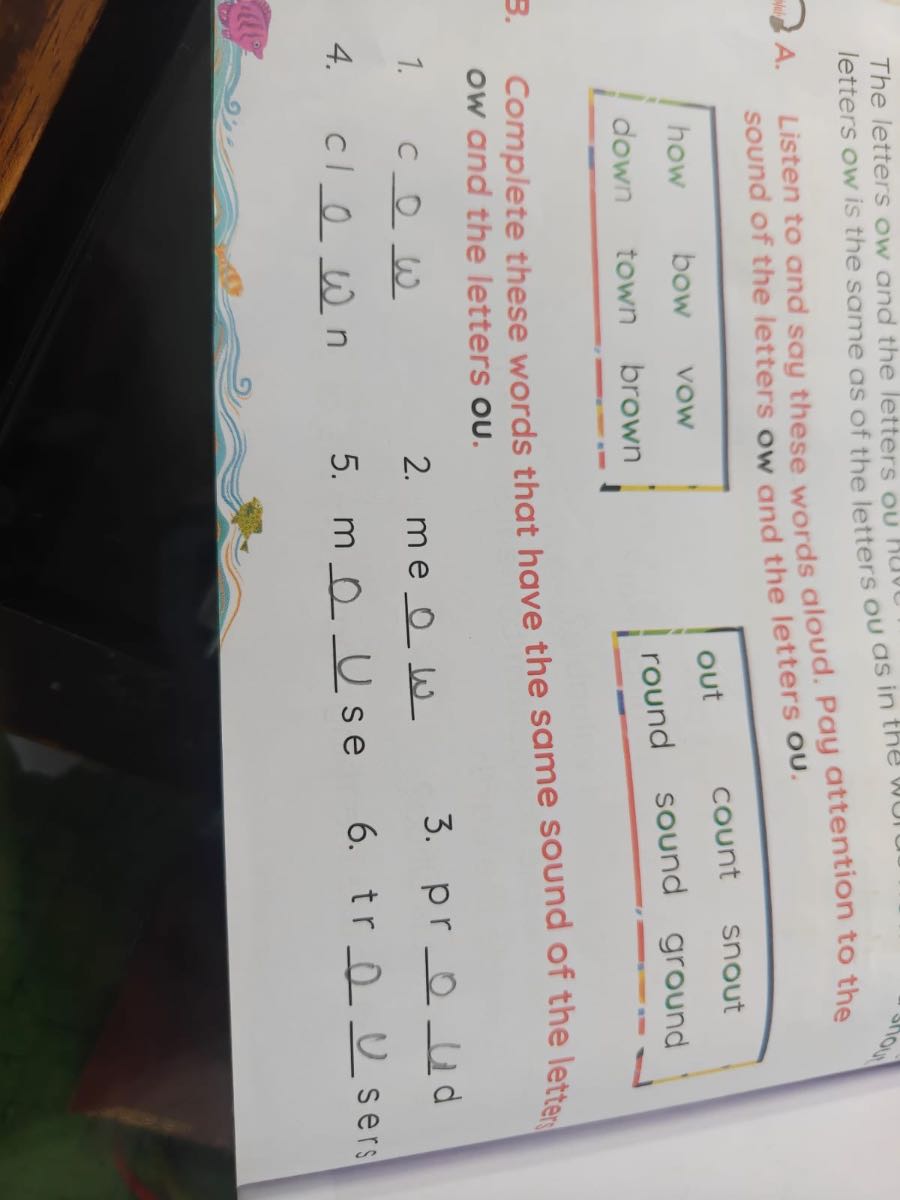 The letters ow and the letters ou
letters ow is the same as of the letters ou as in the
A. Listen to and say these words aloud. Pay attention to the
sound of the letters ow and the letters ou.
how bow vow
down town brown
out count snout
round sound ground
B. Complete these words that have the same sound of the letters
ow and the letters ou.
1. c o w 2. me o w 3. pr o u d
4. cl o w n 5. m o u se 6. tr o u sers